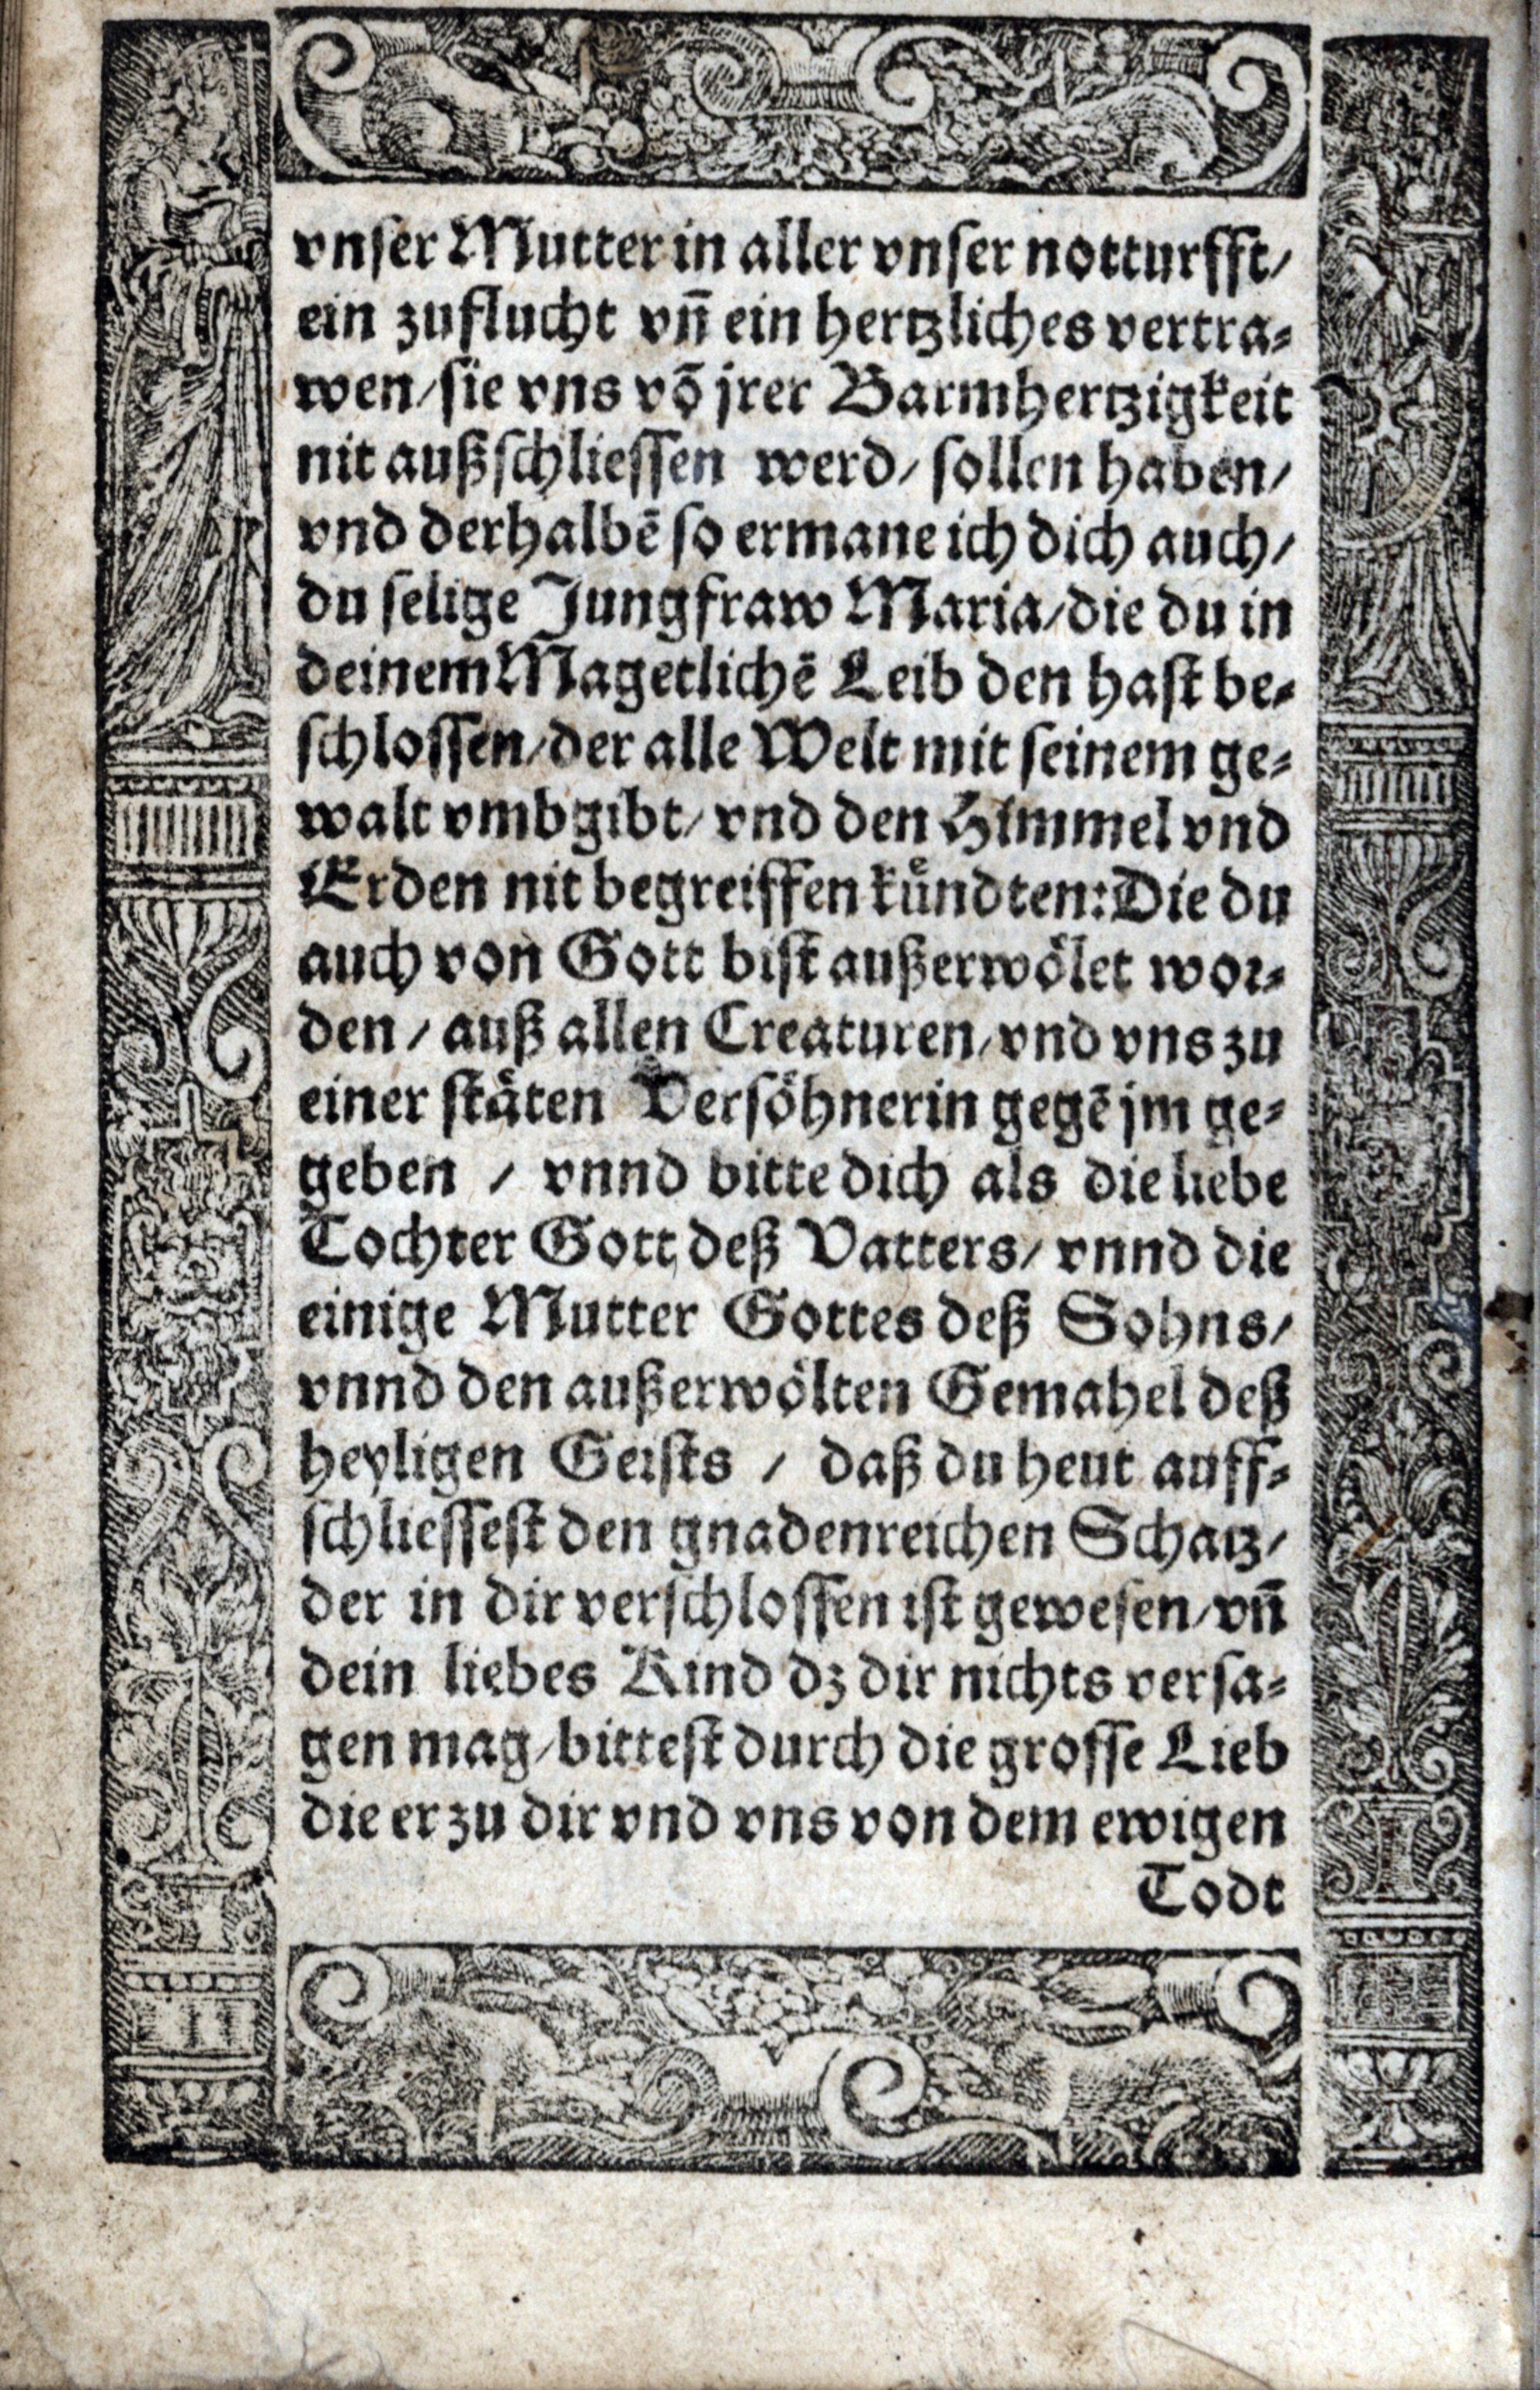 vnser Mutter in aller vnser notturfft/
ein zuflucht vñ ein hertzliches vertra⸗
wen/sie vns võ jrer Barmhertzigkeit
nit außschliessen werd/ sollen haben/
vnd derhalbē so ermane ich dich auch/
du selige Jungfraw Maria/die du in
deinem Magetlichē Leib den hast be⸗
schlossen/der alle Welt mit seinem ge⸗
walt vmbgibt/ vnd den Himmel vnd
Erden nit begreiffen kuͤndten: Die du
auch von Gott bist außerwoͤlet wor⸗
den / auß allen Creaturen/vnd vns zu
einer staͤten Versoͤhnerin gegē jm ge⸗
geben / vnnd bitte dich als die liebe
Tochter Gott deß Vatters/ vnnd die
einige Mutter Gottes deß Sohns/
vnnd den außerwoͤlten Gemahel deß
heyligen Geists / daß du heut auff⸗
schliessest den gnadenreichen Schatz/
der in dir verschlossen ist gewesen/vñ
dein liebes Kind dz dir nichts versa⸗
gen mag/bittest durch die grosse Lieb
die er zu dir vnd vns von dem ewigen
Todt